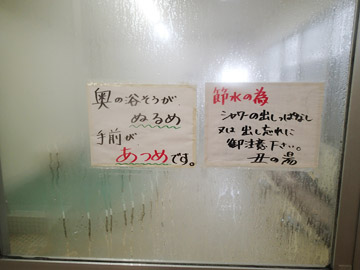 奥の浴そうが
ぬるめ
手前が
あつめです。
節水の為
シャワーの出しっぱなし
又は出し忘れに
御注意下さい。
丑の湯